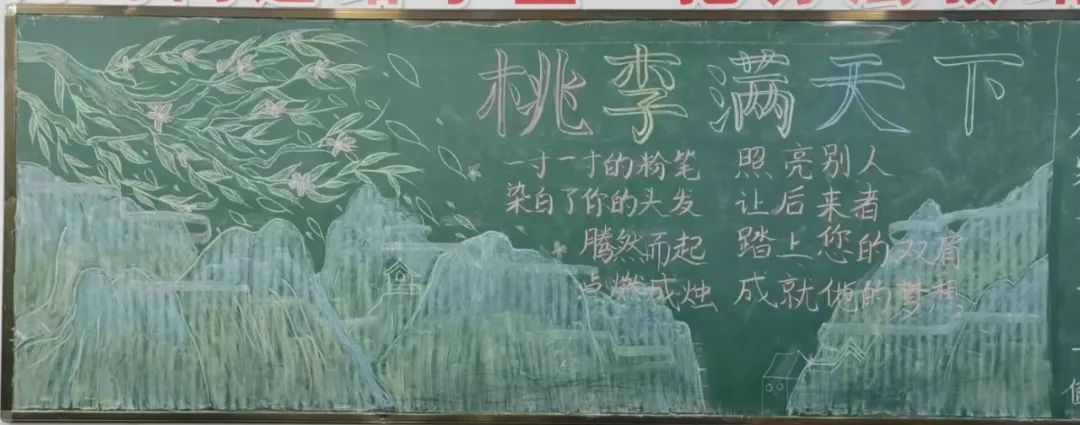 桃李满天下
一寸一寸的粉笔
染白了你的头发
腾然而起
点燃成烛
照亮别人
让后来者
踏上您的双眉
成就他的梦想